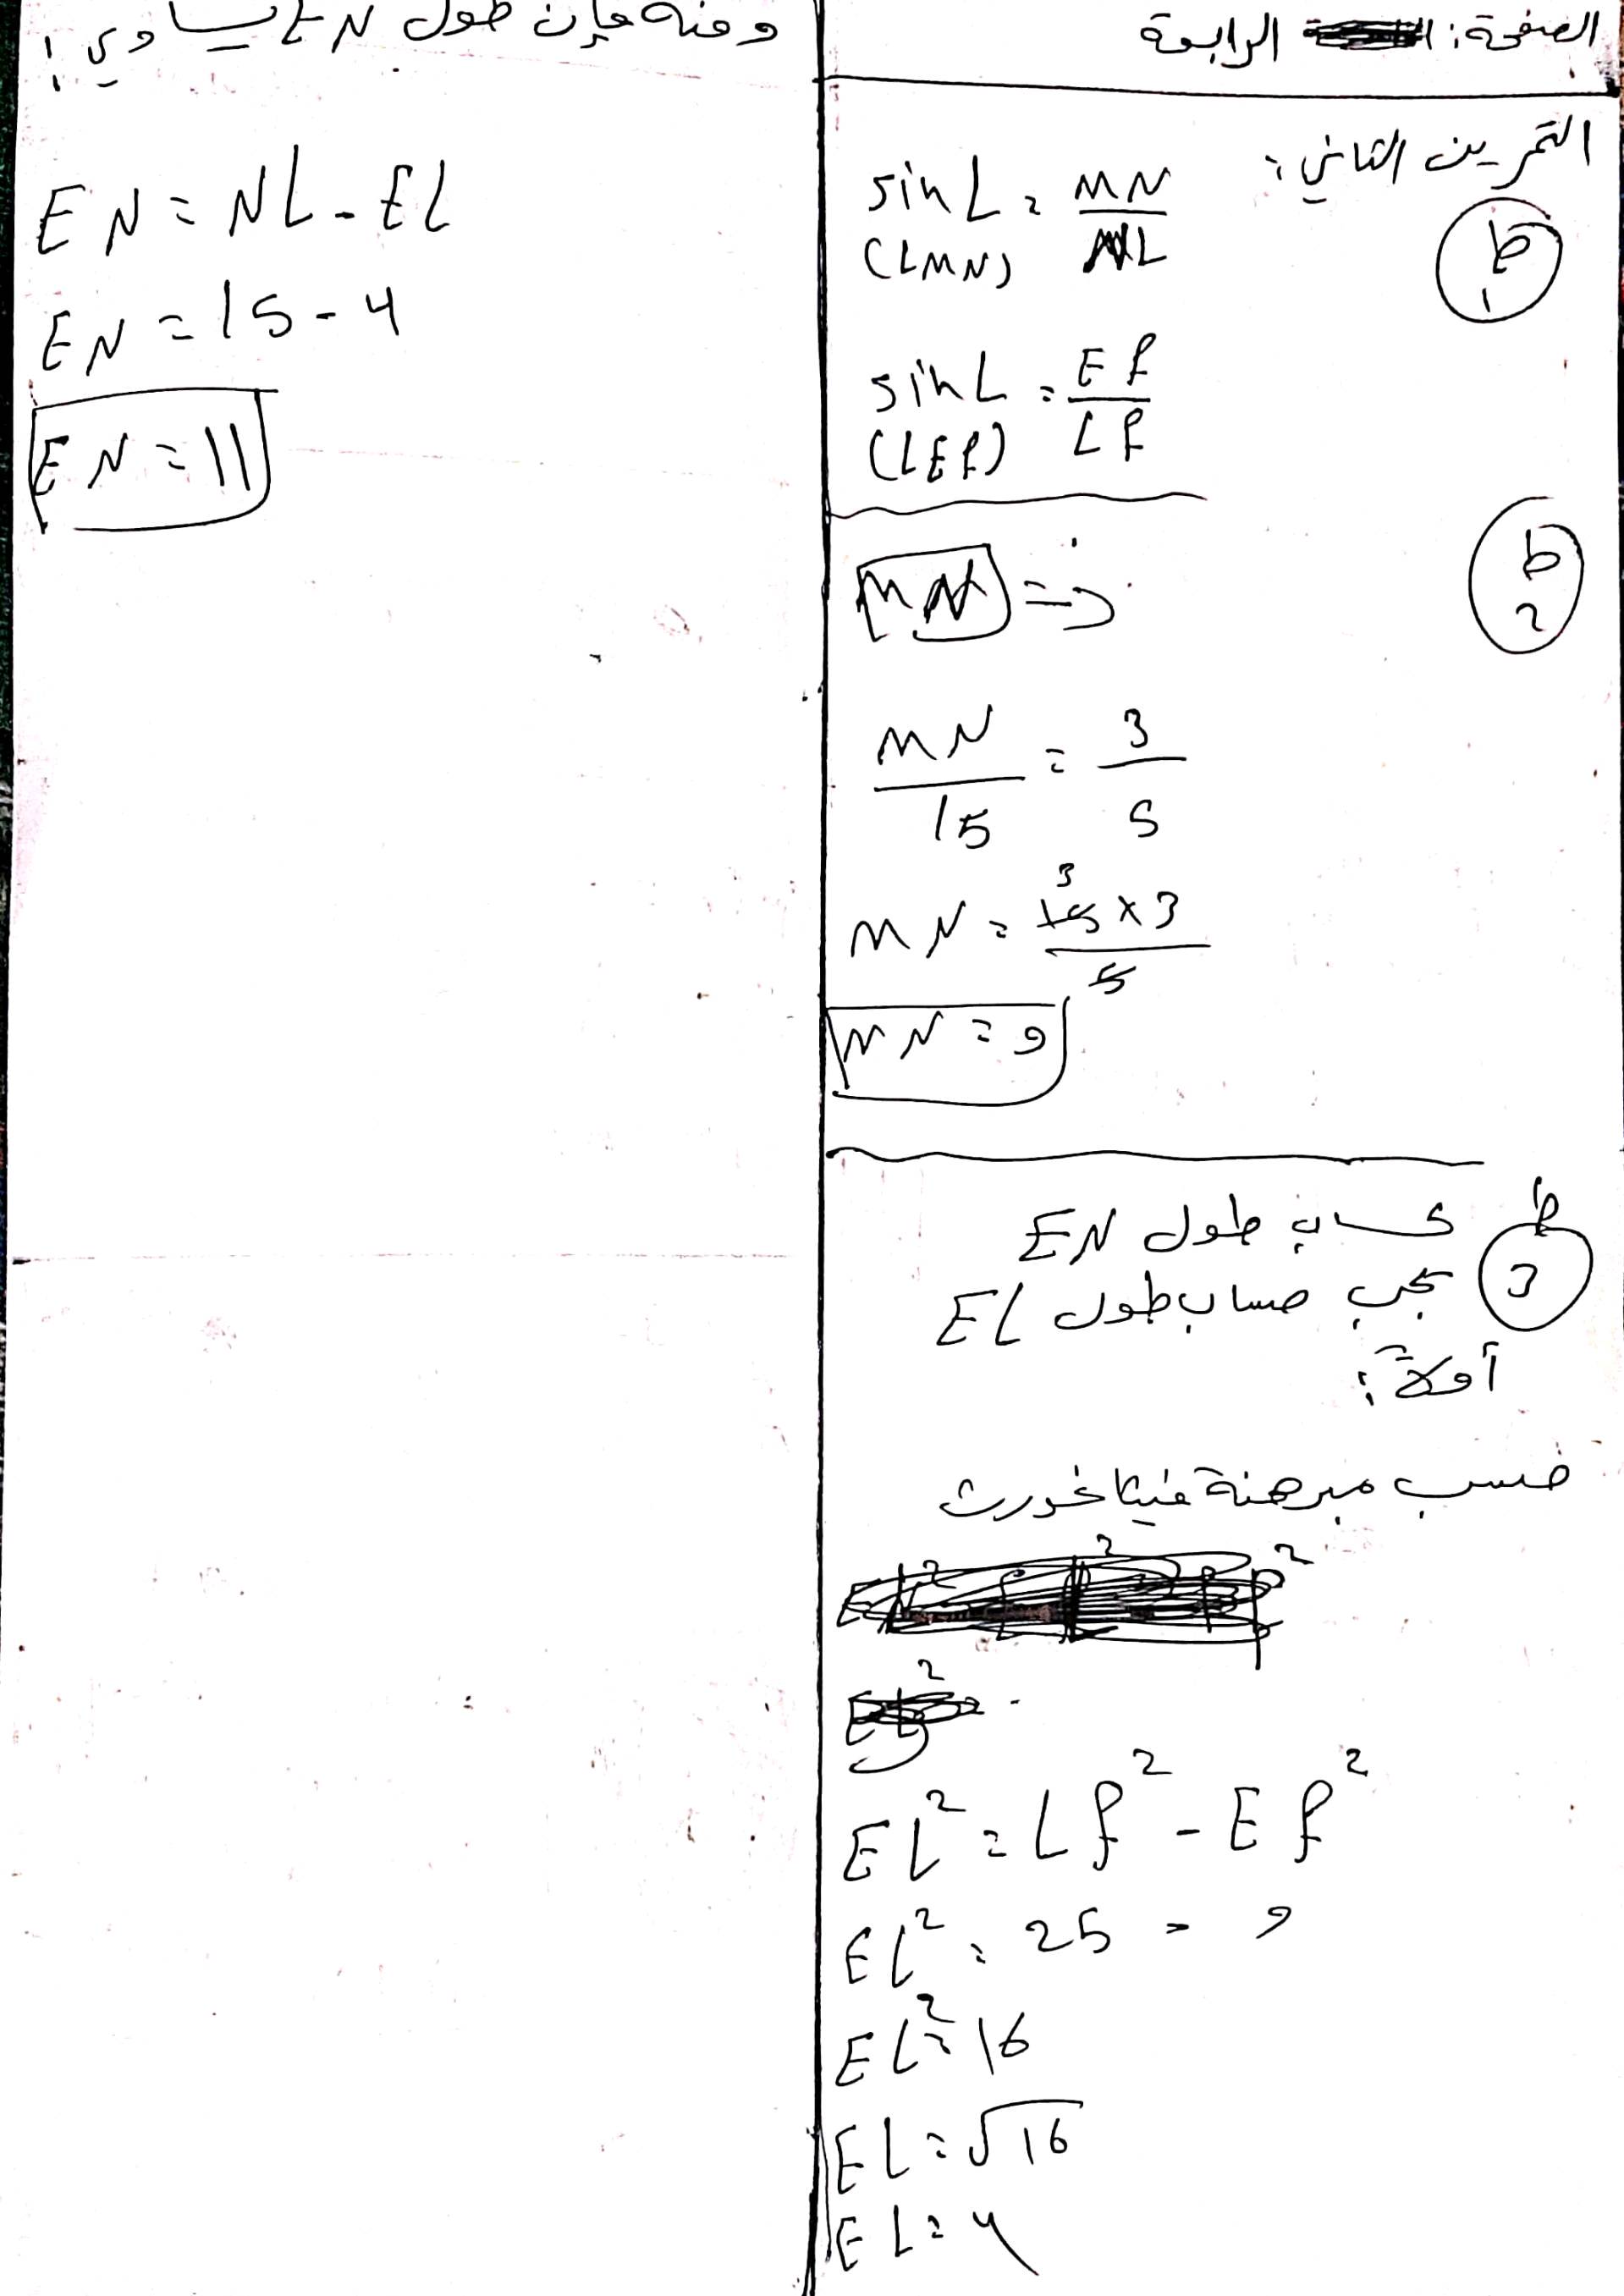 الصفحة: الرابعة
التمرين الثاني:
ط
1
sin L = MN / NL
(LMN)
sin L = EF / LF
(LEF)
ط
2
MN =>
MN / 15 = 3 / 5
MN = 15 × 3 / 5
3
MN = 9
ط
3
لحساب طول EN
يجب حساب طول EL
أولاً:
حسب مبرهنة فيثاغورث
EL² = LF² - EF²
EL² = 25 - 9
EL² = 16
EL = √16
EL = 4
ومنه فإن طول EN يساوي:
EN = NL - EL
EN = 15 - 4
EN = 11